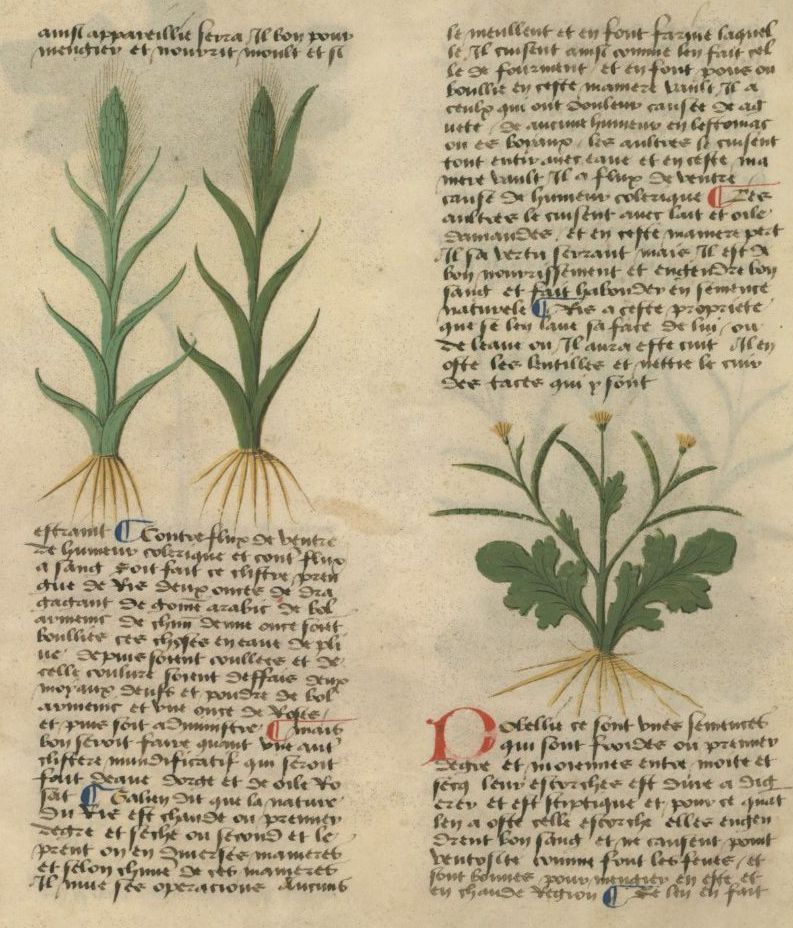 ainsi appareillie serra Il bon pour
mengier et nourrit moult et si
estraint Contre flux de ventre
de humeur colerique et cont' flux
a sang soit fait ce clistre pren
gue de Ris deux onces de dra
gagant de gome arabic de bol
armenic de chun demie once soiēt
boullies ces choses en eaue de plu
ue depuis soient coullees et de
celle coulure soient deffais deux
moyaux deufs et pouldre de bol
armenic et vne once de Roses
et puis soit administre mais
bon seroit faire auant vne aut'
clistere mundificatif qui seroit
fait deaue dorge et de oile Ro
sat Galien dit que la nature
du Ris est chaude ou premier
degre et seche ou second et le
prent on en diuerses manieres
et selon chune de ces manieres
Il mue ses operacions Aucuns
le meullent et en font farine laquel
le Il cuisent ainsi comme len fait cel
le de fourment et en font pous ou
boullie en ceste maniere vault Il a
ceulx qui ont douleur causee de ag
uete de aucune humeur en lestomac
ou es boyaux les aultres le cuisent
tout entir auec eaue et en ceste ma
niere vault Il a flux de ventre
causé de humeur colerique Les
aultres le cuisent auec lait et oile
damandes et en ceste maniere pert
Il sa vertu serrant mais Il est de
bon nourrissement et engendre bon
sang et fait habonder en semence
naturele Ris a ceste propriete
que se len laue sa face de lui ou
de leaue ou Il aura este cuit Il en
oste les lentilles et nettie le cuir
des taces qui y sont
Robellie ce sont vnes semences
qui sont froides ou premier
degre et moiennes entre moite et
secq leur escorches est dure a dig
erer et est stiptique et pour ce quāt
len a oste celle escorche elles engen
drent bon sang et ne causent point
ventosite comme font les feues et
sont bonnes pour mengier en este et
en chaude Region Se len en fait